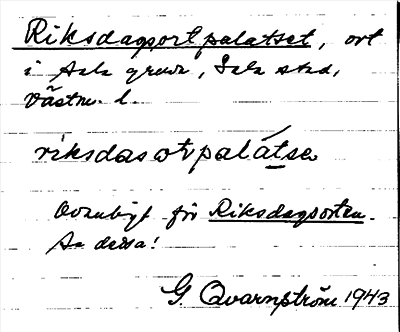 Riksdagsortpalatset, ort
i Sala gruva, Sala stad,
Västm. l.
riksdasotpalátsə
Ovanligt för Riksdagsorten.
Se dessa!
G. Qvarnström 1943